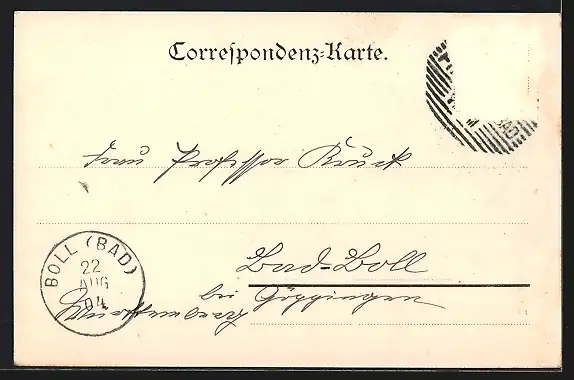 Correspondenz-Karte.
Frau Professor Kruck
Bad-Boll
bei Göppingen
Württemberg
BOLL (BAD)
22
AUG
04